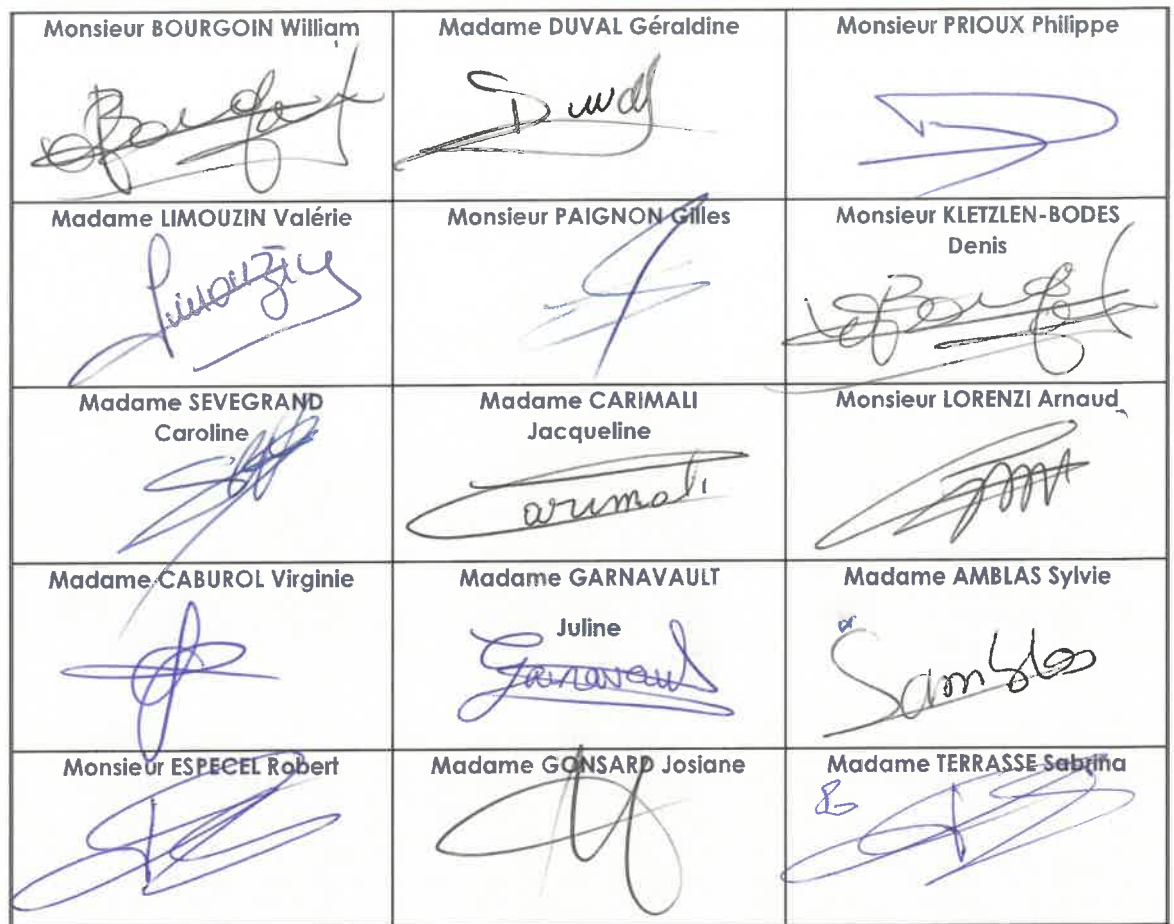 Monsieur BOURGOIN William
Bourgoin
Madame DUVAL Géraldine
Duval
Monsieur PRIOUX Philippe
Madame LIMOUZIN Valérie
Limouzin
Monsieur PAIGNON Gilles
Monsieur KLETZLEN-BODES
Denis
Madame SEVEGRAND
Caroline
Madame CARIMALI
Jacqueline
Carimali
Monsieur LORENZI Arnaud
Madame CABUROL Virginie
Madame GARNAVAULT
Juline
Garnavault
Madame AMBLAS Sylvie
Samblas
Monsieur ESPECEL Robert
Madame GONSARD Josiane
Madame TERRASSE Sabrina